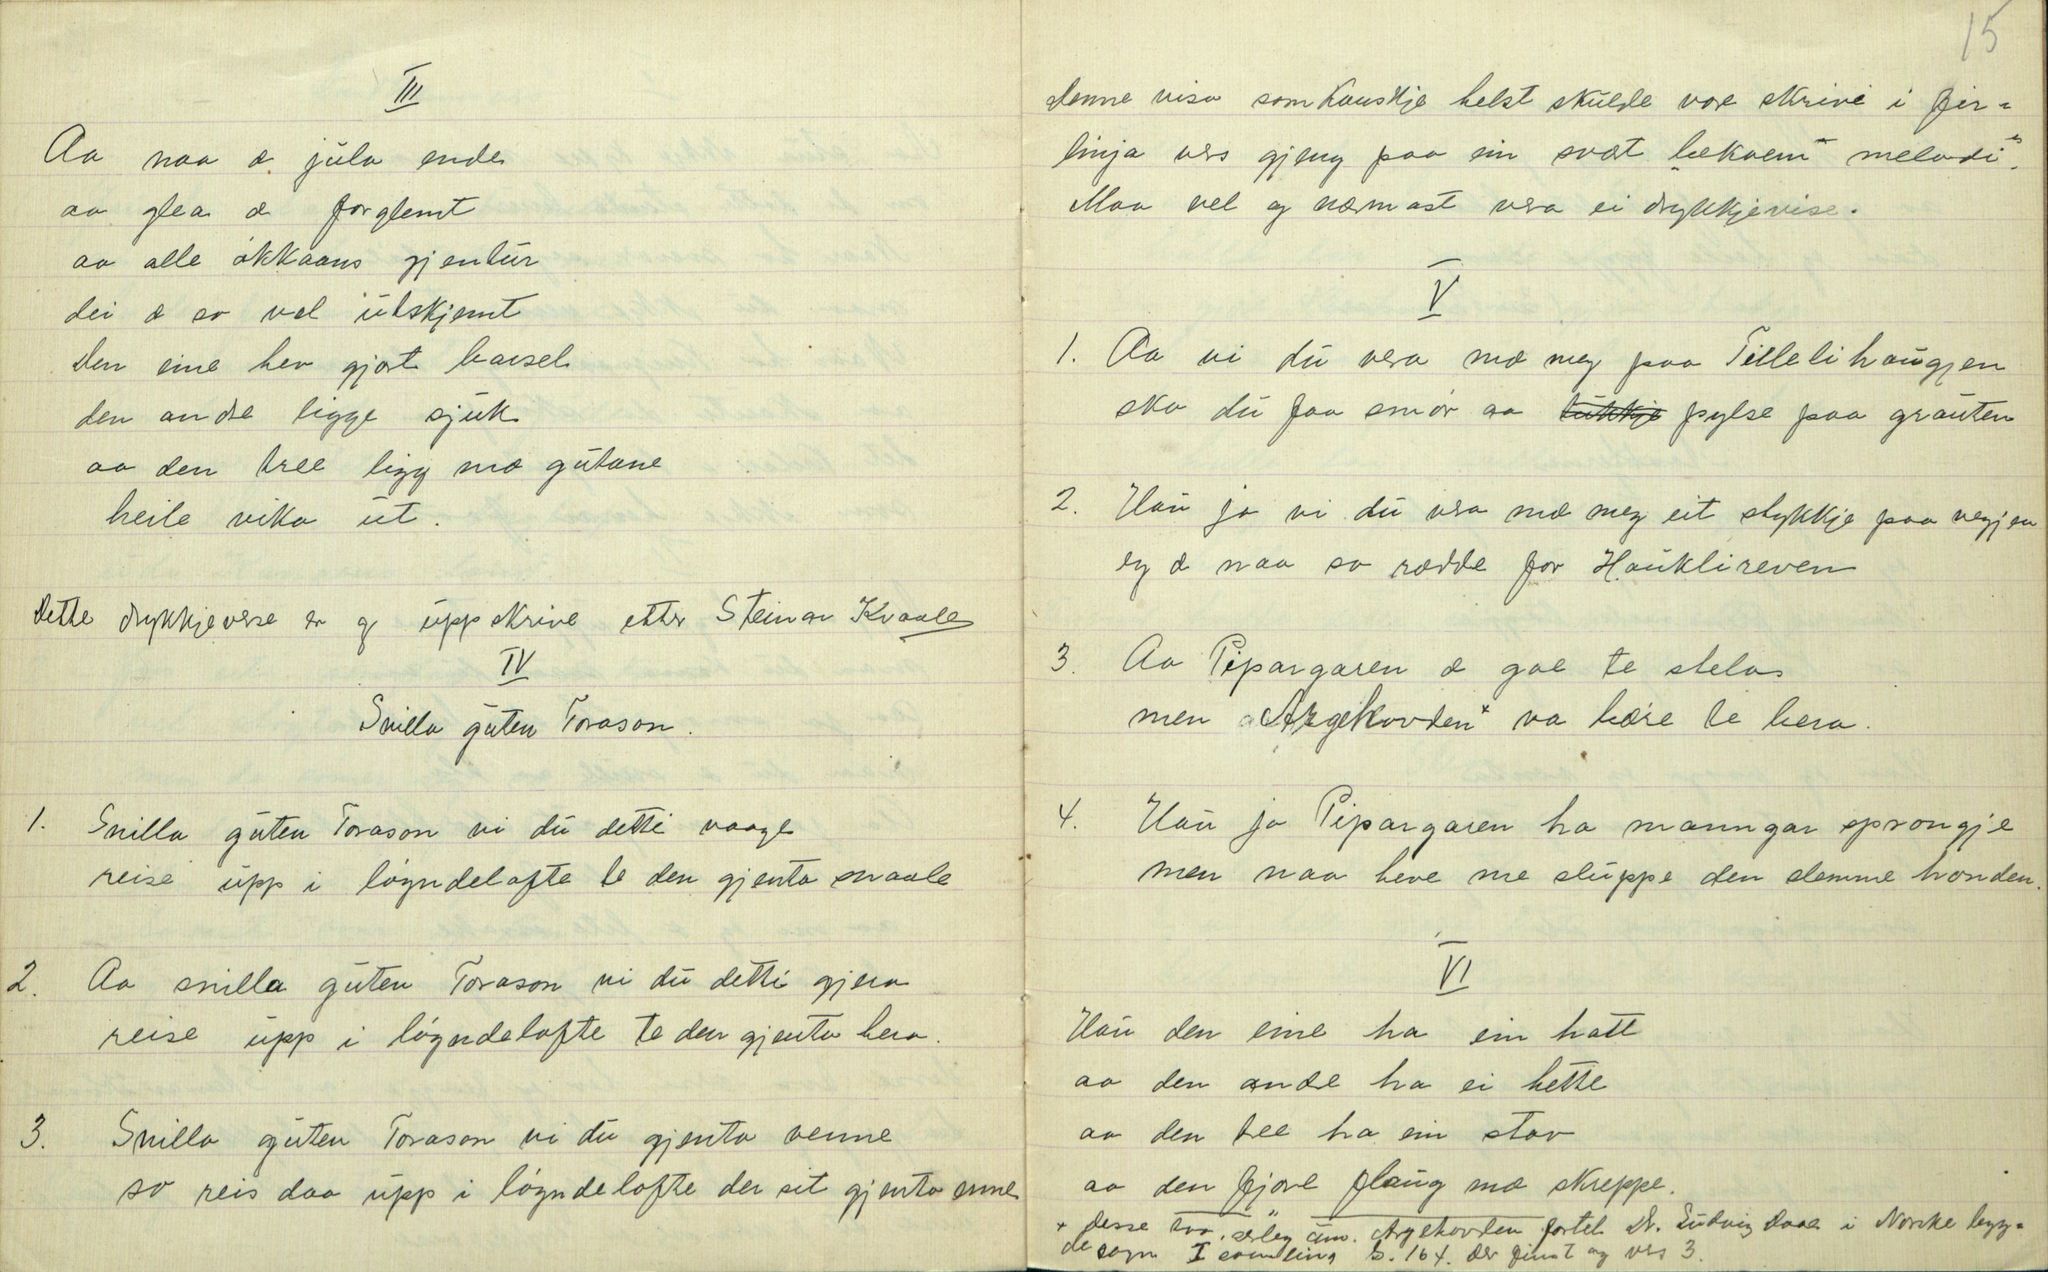 III
Aa naa æ jula ende
aa glea æ forglemt
aa alle økkaans gjentur
dei æ so vel utskjemt
den eine hev gjort barsel
den andre ligge sjuk
aa den tree ligg mæ gutane
heile vika ut.
Dette drykkjeverse er og uppskrive etter Steinar Kvaale
IV
Snilla guten Torason.
1. Snilla guten Torason vi du detti vaage
reise upp i løyndelofte te den gjenta snaale
2. Aa snilla guten Torason vi du detti gjera
reise upp i løyndelofte te den gjenta bera.
3. Snilla guten Torason vi du gjenta venne
so reis daa upp i løyndelofte der sit gjenta enne
15
Denne visa som kanskje helst skulde vore skrive i fir-
linja vers gjeng paa ein svært "lækaem" melodi.
Maa vel og nærmast vera ei drykkjevise.
V
1. Aa vi du vera mæ meg paa Tillelihaugjen
ska du faa smør aa pylse paa grauten
2. Hau ja vi du vera mæ meg eit stykkje paa vegjen
eg æ naa so rædde for Hauklireven
3. Aa Pipargaren æ goe te stela
men Argehovden* va bære te bera.
4. Hau ja Pipargaren ha manngar sprongje
men naa heve me sluppe den slemme honden.
VI
Hau den eine ha ein hatt
aa den andre ha ei hette
aa den tree ha ein stav
aa den fjore flaug mæ skreppe.
* Desse tvo, særleg um Argehovden fortel Dr. Ludvig Daae i Norske byg-
desagn I samling S. 164. der finst og vers 3.